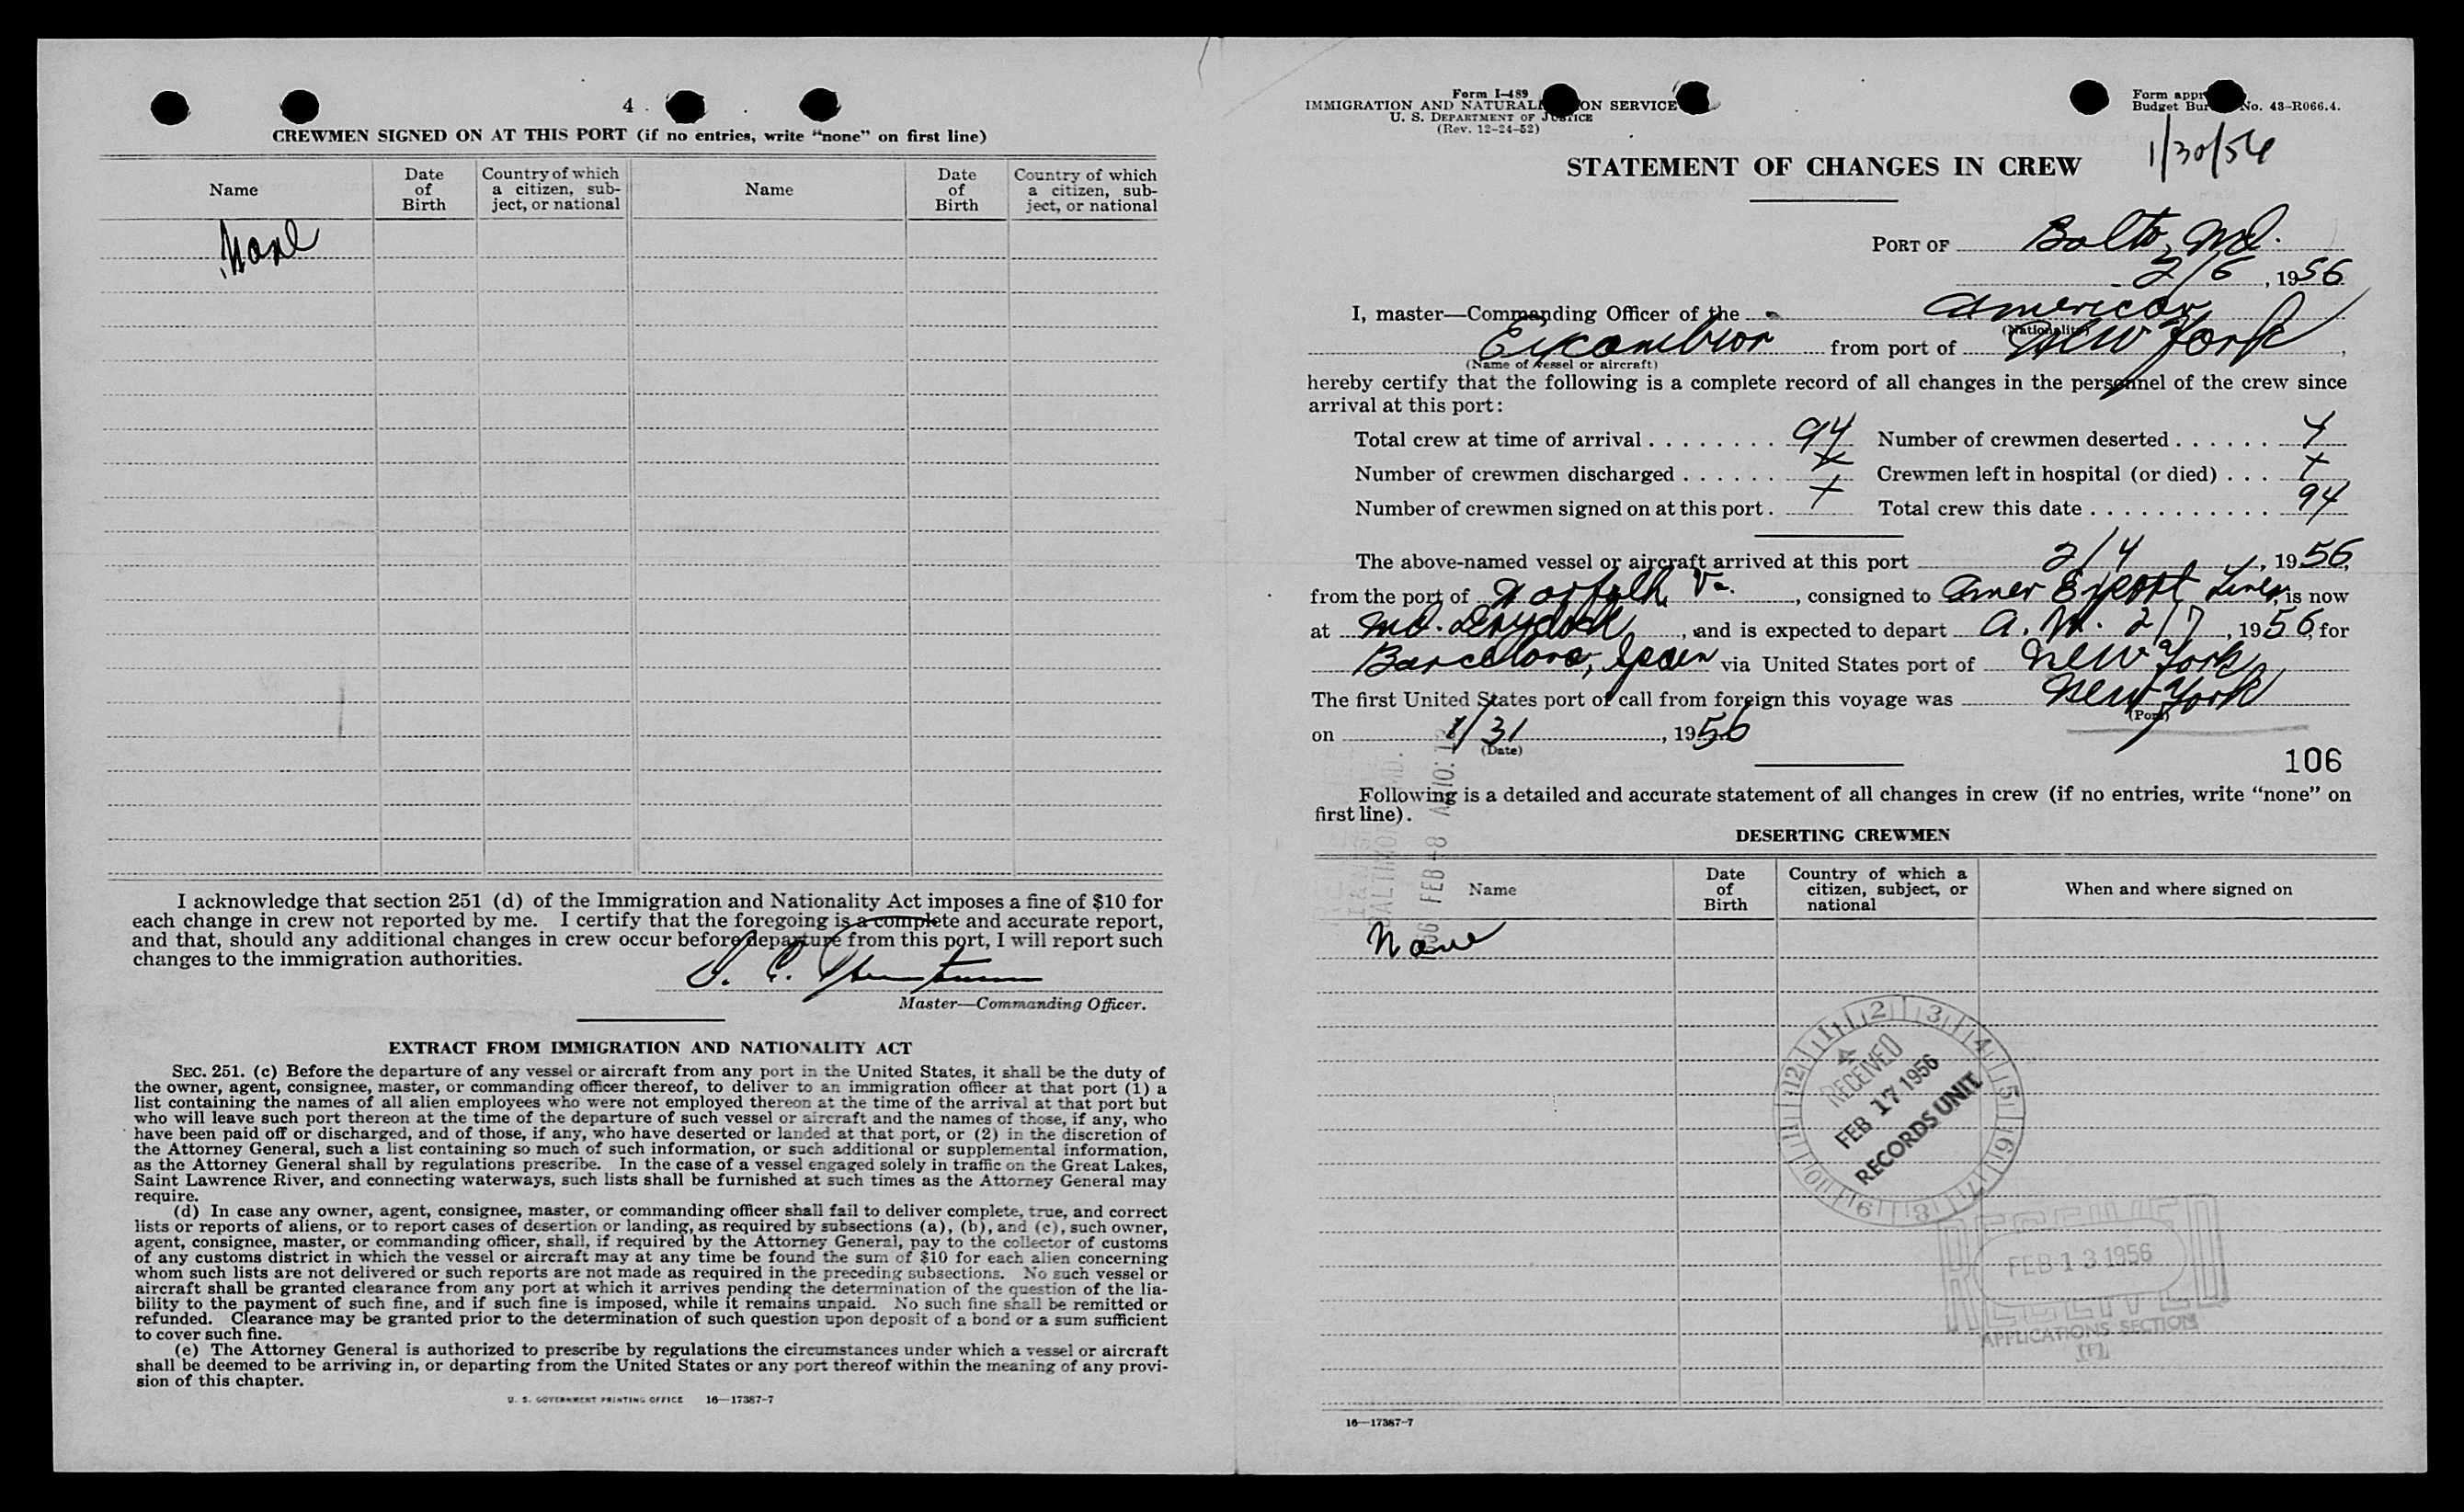 4
CREWMEN SIGNED ON AT THIS PORT (if no entries, write "none" on first line)
Name
Date of Birth
Country of which a citizen, subject, or national
Name
Date of Birth
Country of which a citizen, subject, or national
None
I acknowledge that section 251 (d) of the Immigration and Nationality Act imposes a fine of $10 for
each change in crew not reported by me. I certify that the foregoing is a complete and accurate report,
and that, should any additional changes in crew occur before departure from this port, I will report such
changes to the immigration authorities.
Master—Commanding Officer.
EXTRACT FROM IMMIGRATION AND NATIONALITY ACT
SEC. 251. (c) Before the departure of any vessel or aircraft from any port in the United States, it shall be the duty of
the owner, agent, consignee, master, or commanding officer thereof, to deliver to an immigration officer at that port (1) a
list containing the names of all alien employees who were not employed thereon at the time of the arrival at that port but
who will leave such port thereon at the time of the departure of such vessel or aircraft and the names of those, if any, who
have been paid off or discharged, and of those, if any, who have deserted or landed at that port, or (2) in the discretion of
the Attorney General, such a list containing so much of such information, or such additional or supplemental information,
as the Attorney General shall by regulations prescribe. In the case of a vessel engaged solely in traffic on the Great Lakes,
Saint Lawrence River, and connecting waterways, such lists shall be furnished at such times as the Attorney General may
require.
(d) In case any owner, agent, consignee, master, or commanding officer shall fail to deliver complete, true, and correct
lists or reports of aliens, or to report cases of desertion or landing, as required by subsections (a), (b), and (c), such owner,
agent, consignee, master, or commanding officer, shall, if required by the Attorney General, pay to the collector of customs
of any customs district in which the vessel or aircraft may at any time be found the sum of $10 for each alien concerning
whom such lists are not delivered or such reports are not made as required in the preceding subsections. No such vessel or
aircraft shall be granted clearance from any port at which it arrives pending the determination of the question of the lia-
bility to the payment of such fine, and if such fine is imposed, while it remains unpaid. No such fine shall be remitted or
refunded. Clearance may be granted prior to the determination of such question upon deposit of a bond or a sum sufficient
to cover such fine.
(e) The Attorney General is authorized to prescribe by regulations the circumstances under which a vessel or aircraft
shall be deemed to be arriving in, or departing from the United States or any port thereof within the meaning of any provi-
sion of this chapter.
U. S. GOVERNMENT PRINTING OFFICE 16—17387-7
Form I-489
IMMIGRATION AND NATURALI ON SERVICE
U. S. DEPARTMENT OF JUSTICE
(Rev. 12-24-52)
Form appr
Budget Bur No. 43-R066.4.
1/30/56
STATEMENT OF CHANGES IN CREW
PORT OF Balto, Md.
2/6, 1956
I, master—Commanding Officer of the American
(Nationality)
Excambion from port of New York,
(Name of vessel or aircraft)
hereby certify that the following is a complete record of all changes in the personnel of the crew since
arrival at this port:
Total crew at time of arrival 94 Number of crewmen deserted x
Number of crewmen discharged x Crewmen left in hospital (or died) x
Number of crewmen signed on at this port. x Total crew this date 94
The above-named vessel or aircraft arrived at this port 2/4, 1956,
from the port of Norfolk Va., consigned to Amer Export Lines, is now
at Md. Drydock, and is expected to depart A.M. 2/7, 1956, for
Barcelona, Spain via United States port of New York
The first United States port of call from foreign this voyage was New York
(Port)
on 1/31, 1956
(Date)
106
Following is a detailed and accurate statement of all changes in crew (if no entries, write "none" on
first line).
DESERTING CREWMEN
Name
Date of Birth
Country of which a citizen, subject, or national
When and where signed on
None
RECEIVED
FEB 17 1956
RECORDS UNIT
RECEIVED
FEB 13 1956
RECEIVED
APPLICATIONS SECTION
16—17387-7